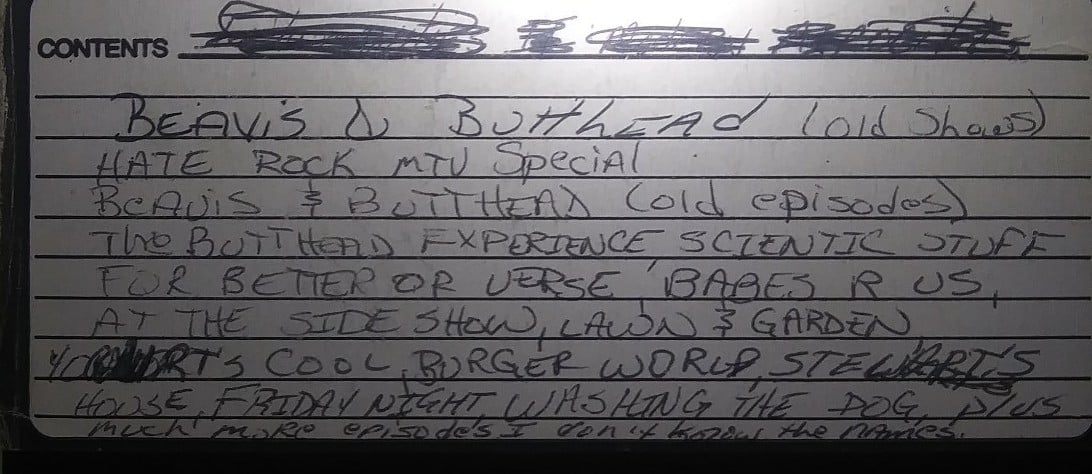 CONTENTS
BEAVIS & BUTTHEAD (old shows)
HATE ROCK MTV Special
BEAVIS & BUTTHEAD (old episodes)
The BUTTHEAD EXPERIENCE SCIENTIC STUFF
FOR BETTER OR VERSE, BABES R US,
AT THE SIDE SHOW, LAWN & GARDEN
COOL, BURGER WORLD, STEWART'S
HOUSE, FRIDAY NIGHT, WASHING THE DOG, plus
much more episodes I don't know the names.